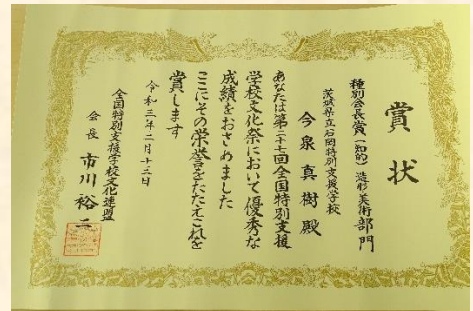 賞状
種別会長賞(知的) 造形・美術部門
茨城県立石岡特別支援学校
今泉真樹殿
あなたは第二十七回全国特別支援
学校文化祭において優秀な
成績をおさめました
ここにその栄誉をたたえこれを
賞します
令和三年二月十三日
全国特別支援学校文化連盟
会長 市川裕二